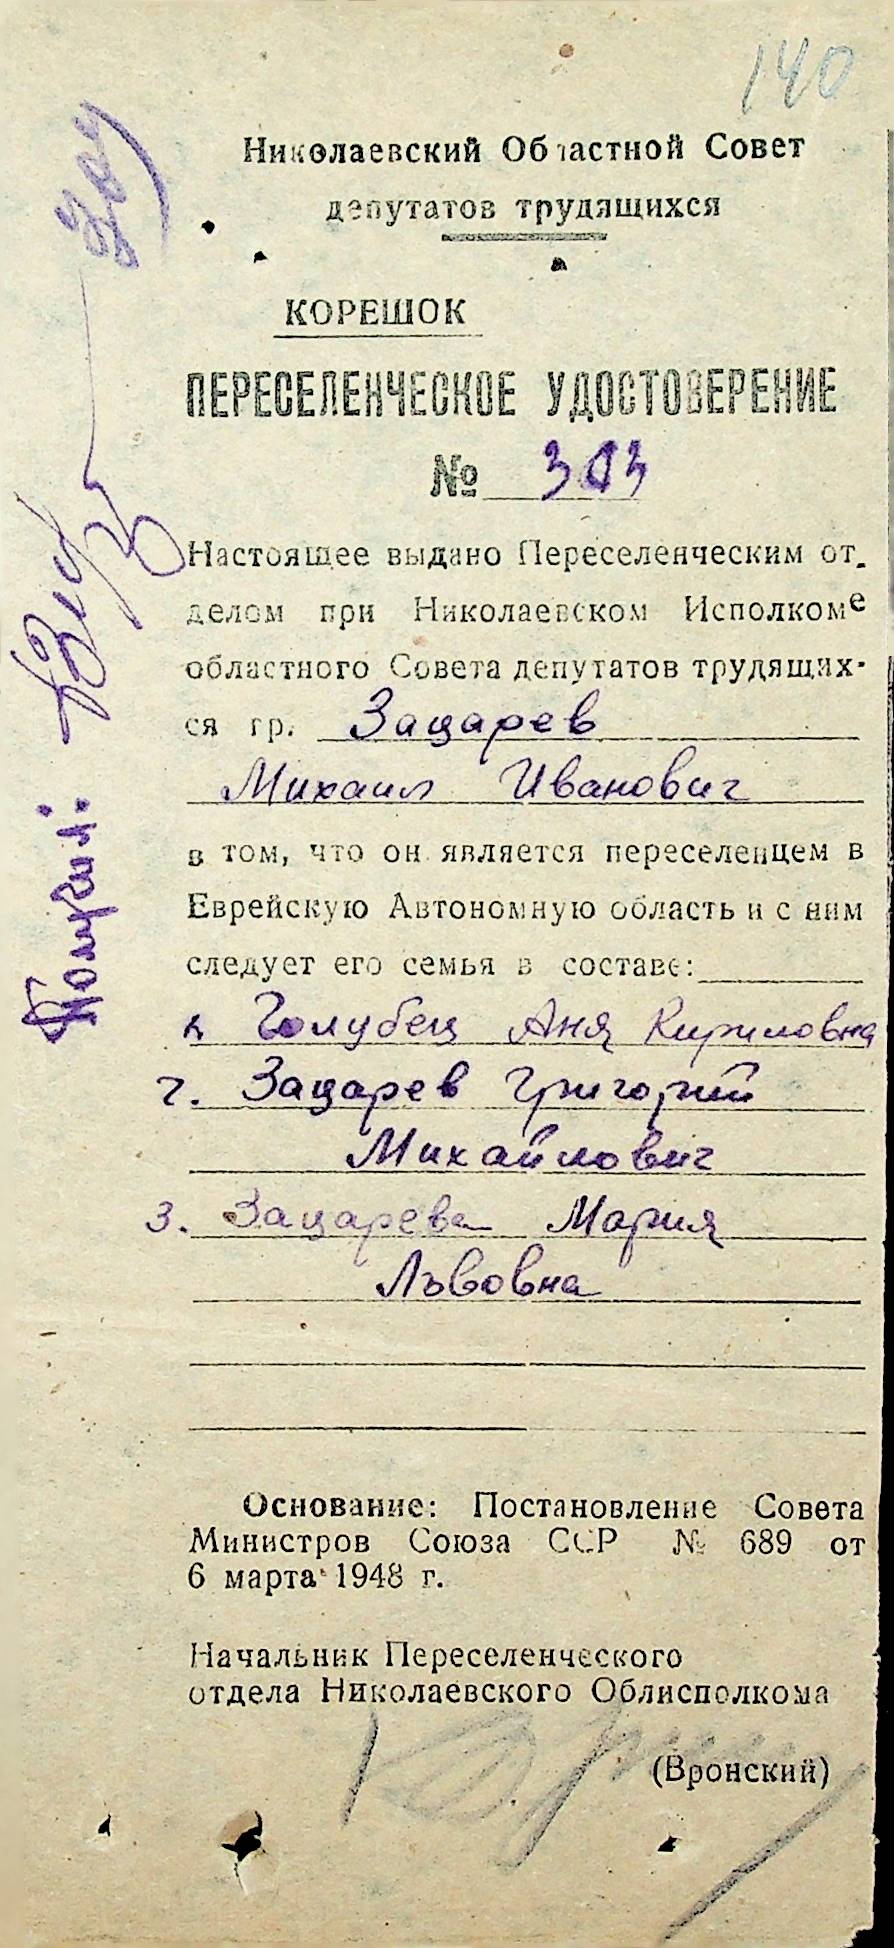 140
Николаевский Областной Совет
депутатов трудящихся
КОРЕШОК
ПЕРЕСЕЛЕНЧЕСКОЕ УДОСТОВЕРЕНИЕ
№ 303
Настоящее выдано Переселенческим от.
делом при Николаевском Исполкоме
областного Совета депутатов трудящих-
ся гр. Зацарев
Михаил Иванович
в том, что он является переселенцем в
Еврейскую Автономную область и с ним
следует его семья в составе:
1. Голубец Аня Кириловна
2. Зацарев Григорий
Михайлович
3. Зацарева Мария
Львовна
Основание: Постановление Совета
Министров Союза ССР № 689 от
6 марта 1948 г.
Начальник Переселенческого
отдела Николаевского Облисполкома
(Вронский)
Получил: